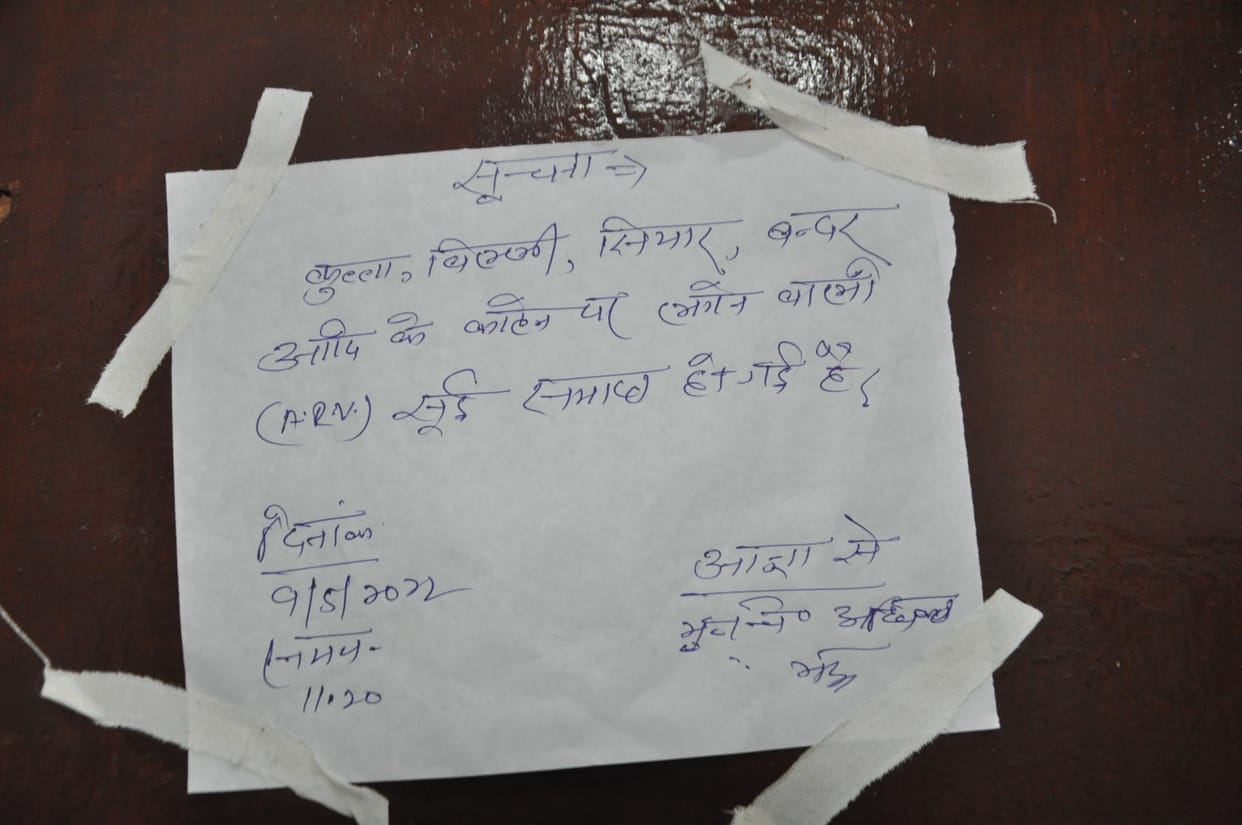 सूचना ⇒
कुत्ता, बिल्ली, सियार, बन्दर
आदि के काटने पर लगने वाली
(A.R.V.) सूई समाप्त हो गई है।
दिनांक
9/5/2022
समय-
11.20
आज्ञा से
मु० चि०